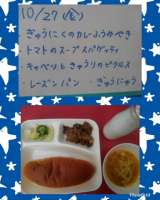 10/27(金)
ぎゅうにくのカレーふうみやき
トマトのスープスパゲッティ
キャベツときゅうりのピクルス
・レーズンパン ・ぎゅうにゅう